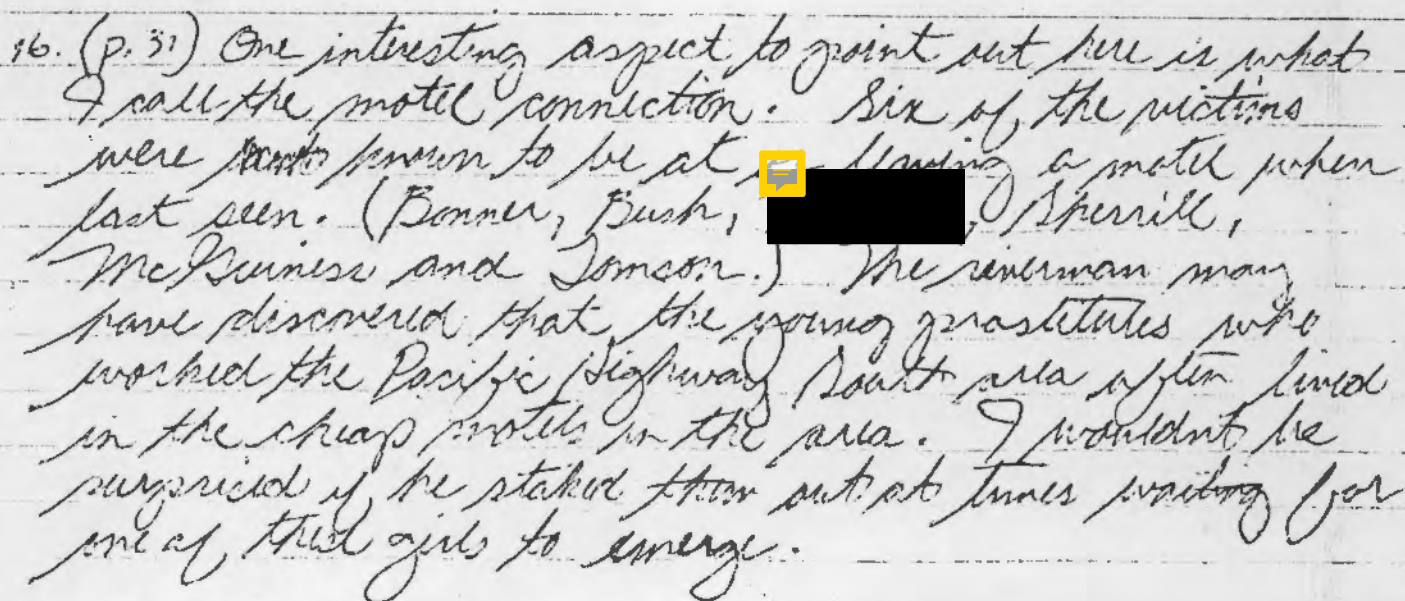 16. (p. 31) One interesting aspect to point out here is what
I call the motel connection. Six of the victims
were known to be at leaving a motel when
last seen. (Bonner, Bush, , Sherrill,
McGuiness and Tomson.) The riverman may
have discovered that the young prostitutes who
worked the Pacific Highway South area often lived
in the cheap motels in the area. I wouldnt be
surpriced if he staked them out at times waiting for
one of thes girls to emerge.